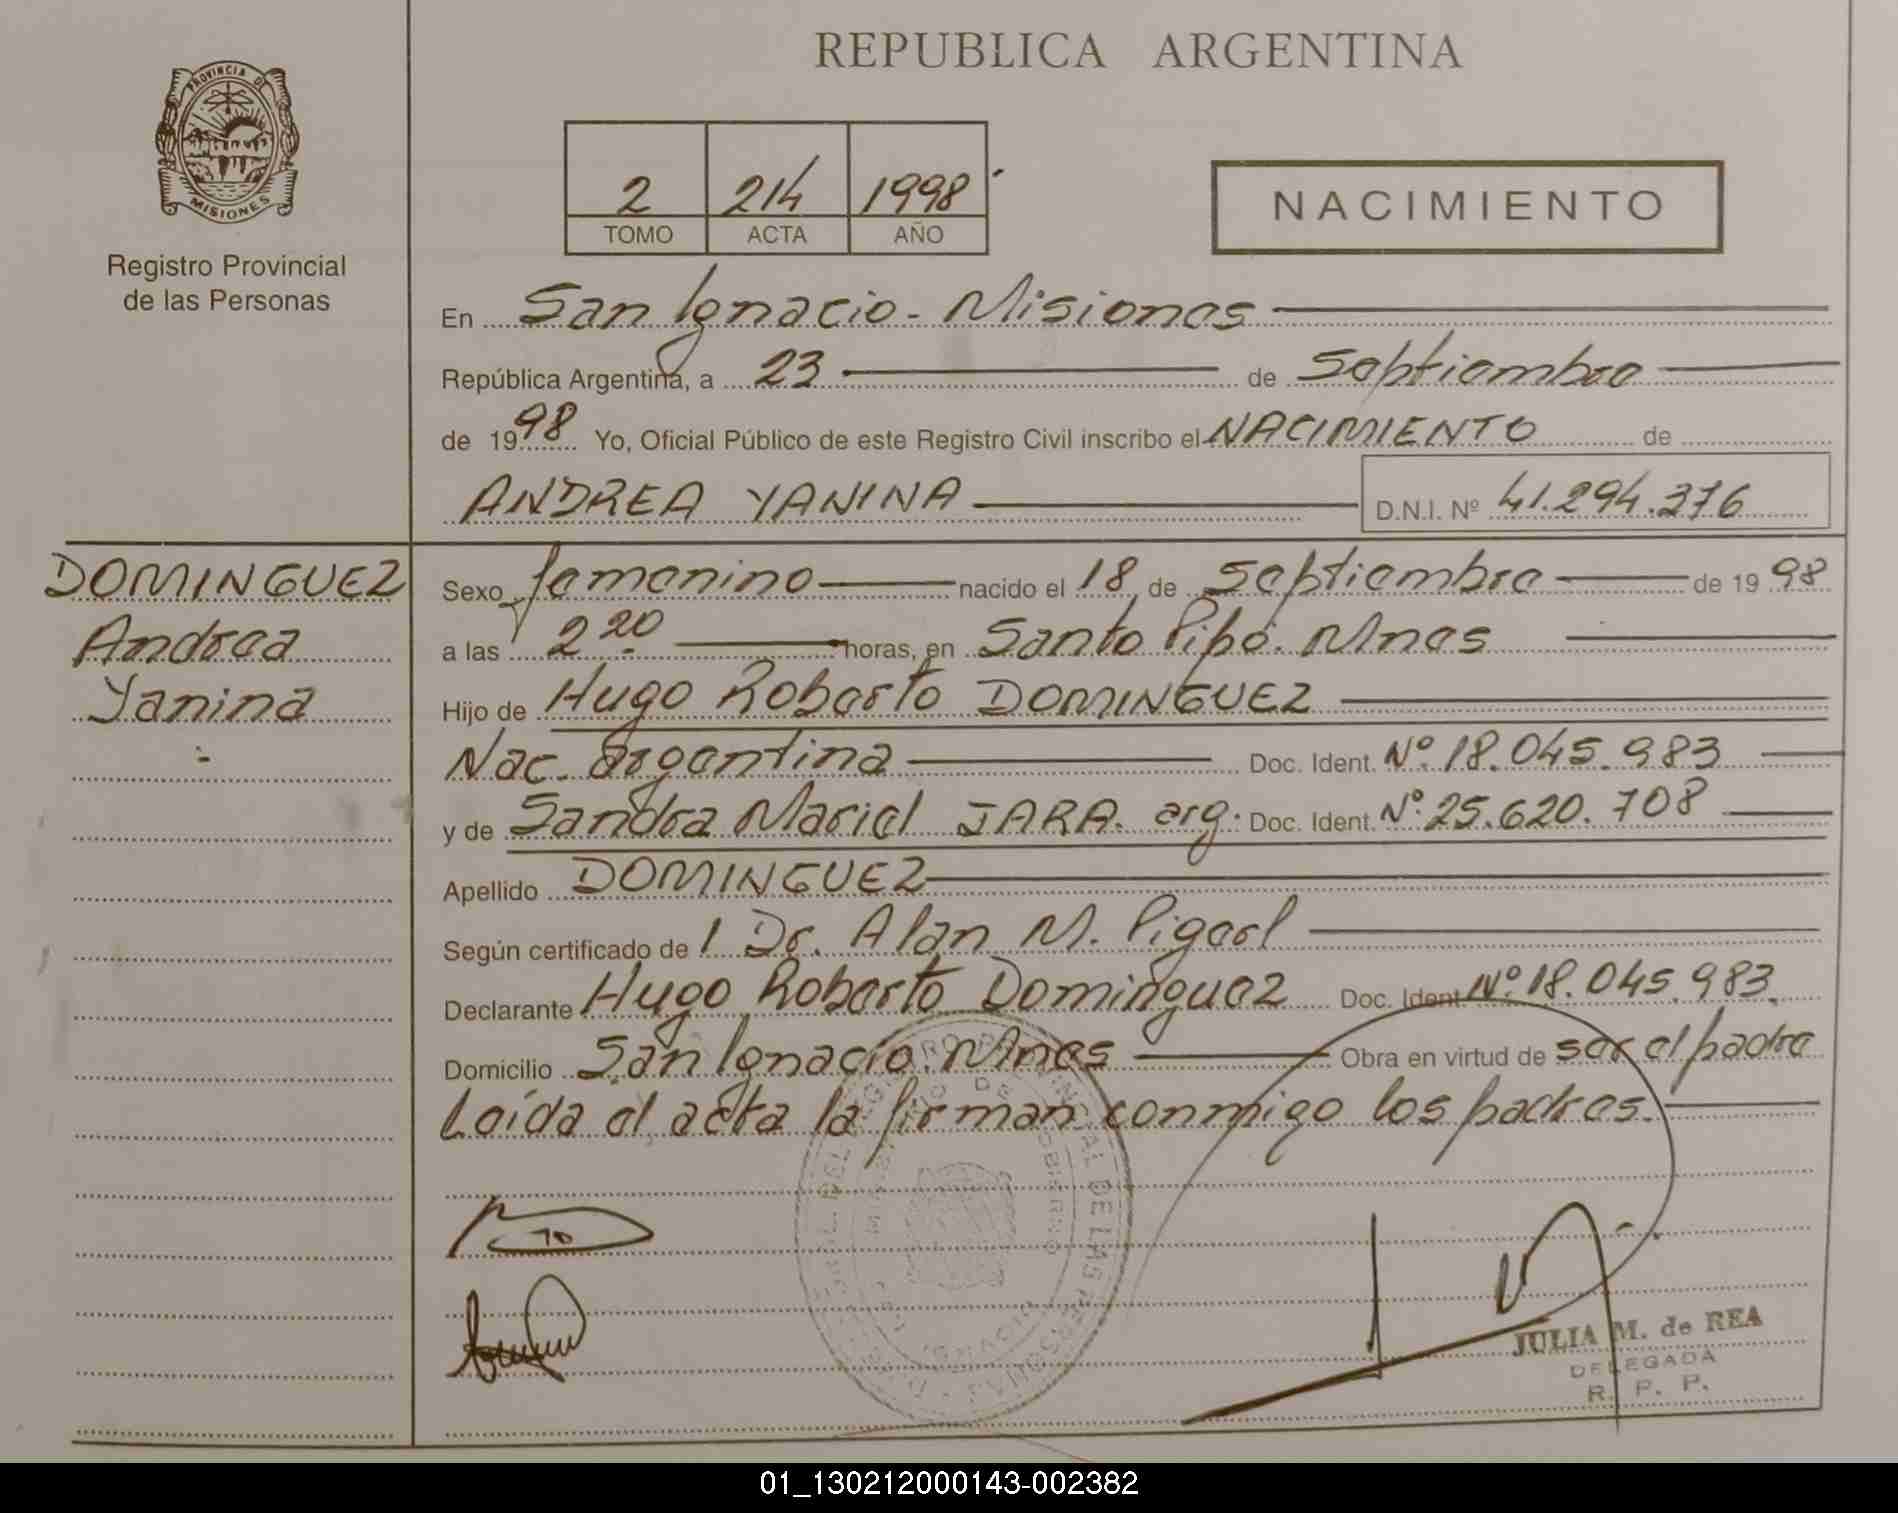 REPUBLICA ARGENTINA
PROVINCIA DE
MISIONES
Registro Provincial
de las Personas
2 214 1998
TOMO ACTA AÑO
NACIMIENTO
En San Ignacio - Misiones
República Argentina, a 23 de Septiembre
de 1998 Yo, Oficial Público de este Registro Civil inscribo el NACIMIENTO de
ANDREA YANINA D.N.I. Nº 41.294.376
DOMINGUEZ
Andrea
Yanina
Sexo femenino nacido el 18 de Septiembre de 1998
a las 2 20 horas, en Santo Pipó. Mnes
Hijo de Hugo Roberto DOMINGUEZ
Nac. argentina Doc. Ident. Nº 18.045.983
y de Sandra Mariel JARA. arg. Doc. Ident. Nº 25.620.708
Apellido DOMINGUEZ
Según certificado de 1 Dr. Alan M. Pigerl
Declarante Hugo Roberto Dominguez Doc. Ident Nº 18.045.983.
Domicilio San Ignacio. Mnes Obra en virtud de ser el padre
Leída el acta la firman conmigo los padres.
JULIA M. de REA
DELEGADA
R. P. P.
01_130212000143-002382